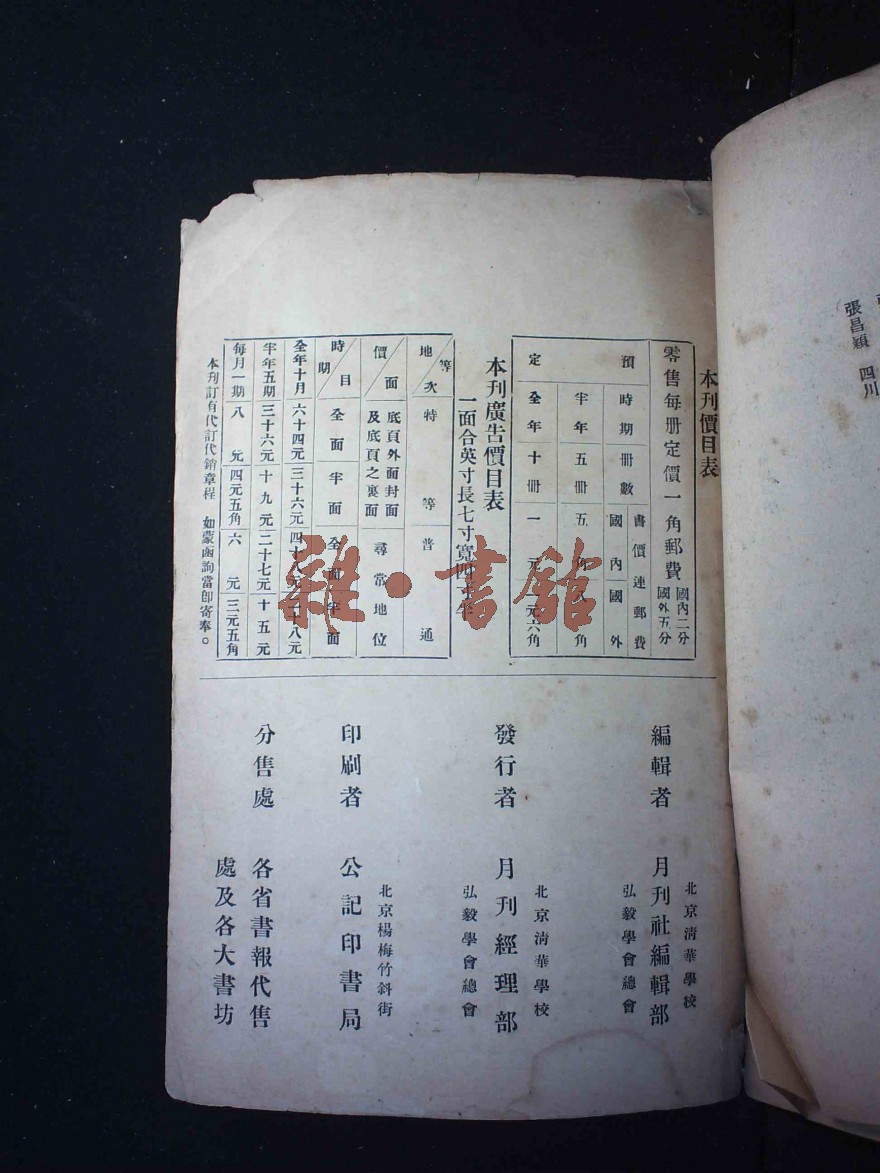 張昌穎 四川
本刊價目表
零售每册定價一角郵費 國內二分 國外五分
預定
時期 册數 書價連郵費 國內 國外
半年 五册 五角 八角
全年 十册 一元 元六角
本刊廣告價目表
一面合英寸長七寸寬四寸半
等次 地 特等 普通
價 面 底頁外面封面及底頁之裏面 尋常地位
時期 目 全面 半面 全面 半面
全年十月 六十四元 三十六元 四十八元 二十八元
半年五期 三十六元 十九元 二十七元 十五元
每月一期 八元 四元五角 六元 三元五角
本刊訂有代訂代銷章程 如蒙函詢當卽寄奉。
編輯者 北京清華學校 弘毅學會總會 月刊社編輯部
發行者 北京清華學校 弘毅學會總會 月刊經理部
印刷者 北京楊梅竹斜街 公記印書局
分售處 各省書報代售
處及各大書坊
雜·書館